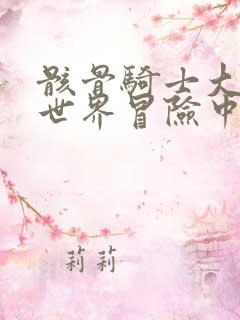 骸骨騎士大
世界冒險中
莉莉